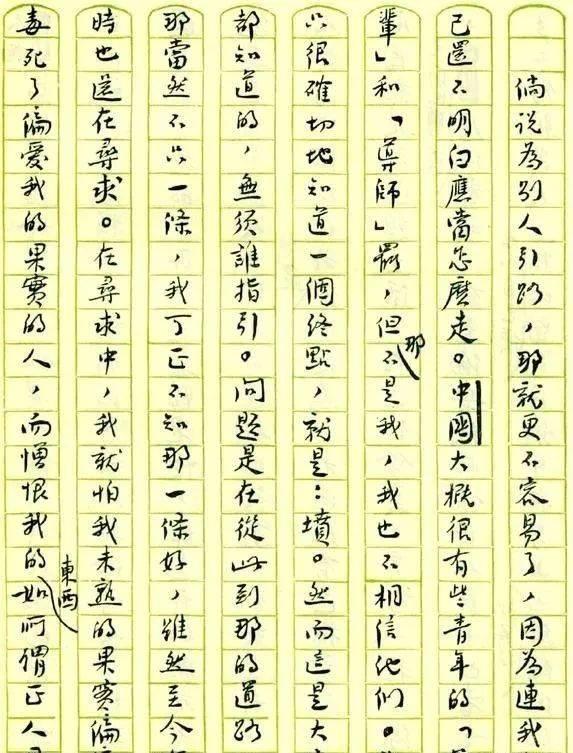 倘说為别人引路，那就更不容易了，因為連我
己還不明白應當怎麽走。中國大概很有些青年的「
輩」和「導師」罷，但那不是我，我也不相信他們。
只很確切地知道一個終點，就是：墳。然而這是大
都知道的，無須誰指引。問題是在從此到那的道路
那當然不只一條，我可正不知那一條好，雖然至今
時也還在尋求。在尋求中，我就怕我未熟的果實偏
毒死了偏愛我的果實的人，而憎恨我的東西如所謂正人